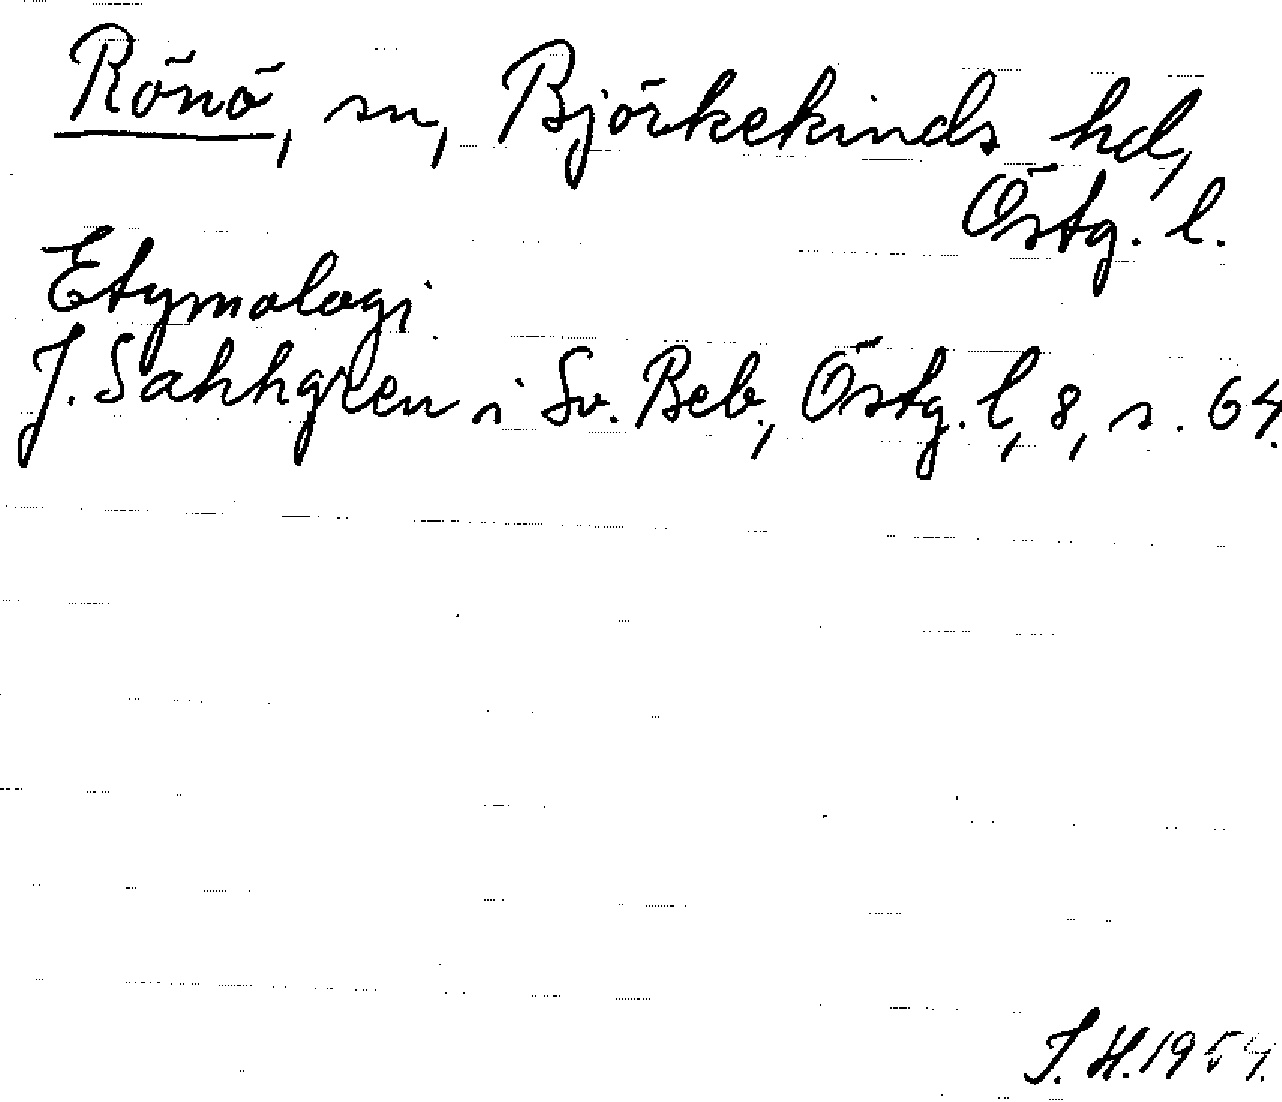 Rönö, sn, Björkekinds hd,
Östg. l.
Etymologi
J. Sahlgren i Sv. Beb., Östg. l, 8, s. 64.
J. H. 1954.